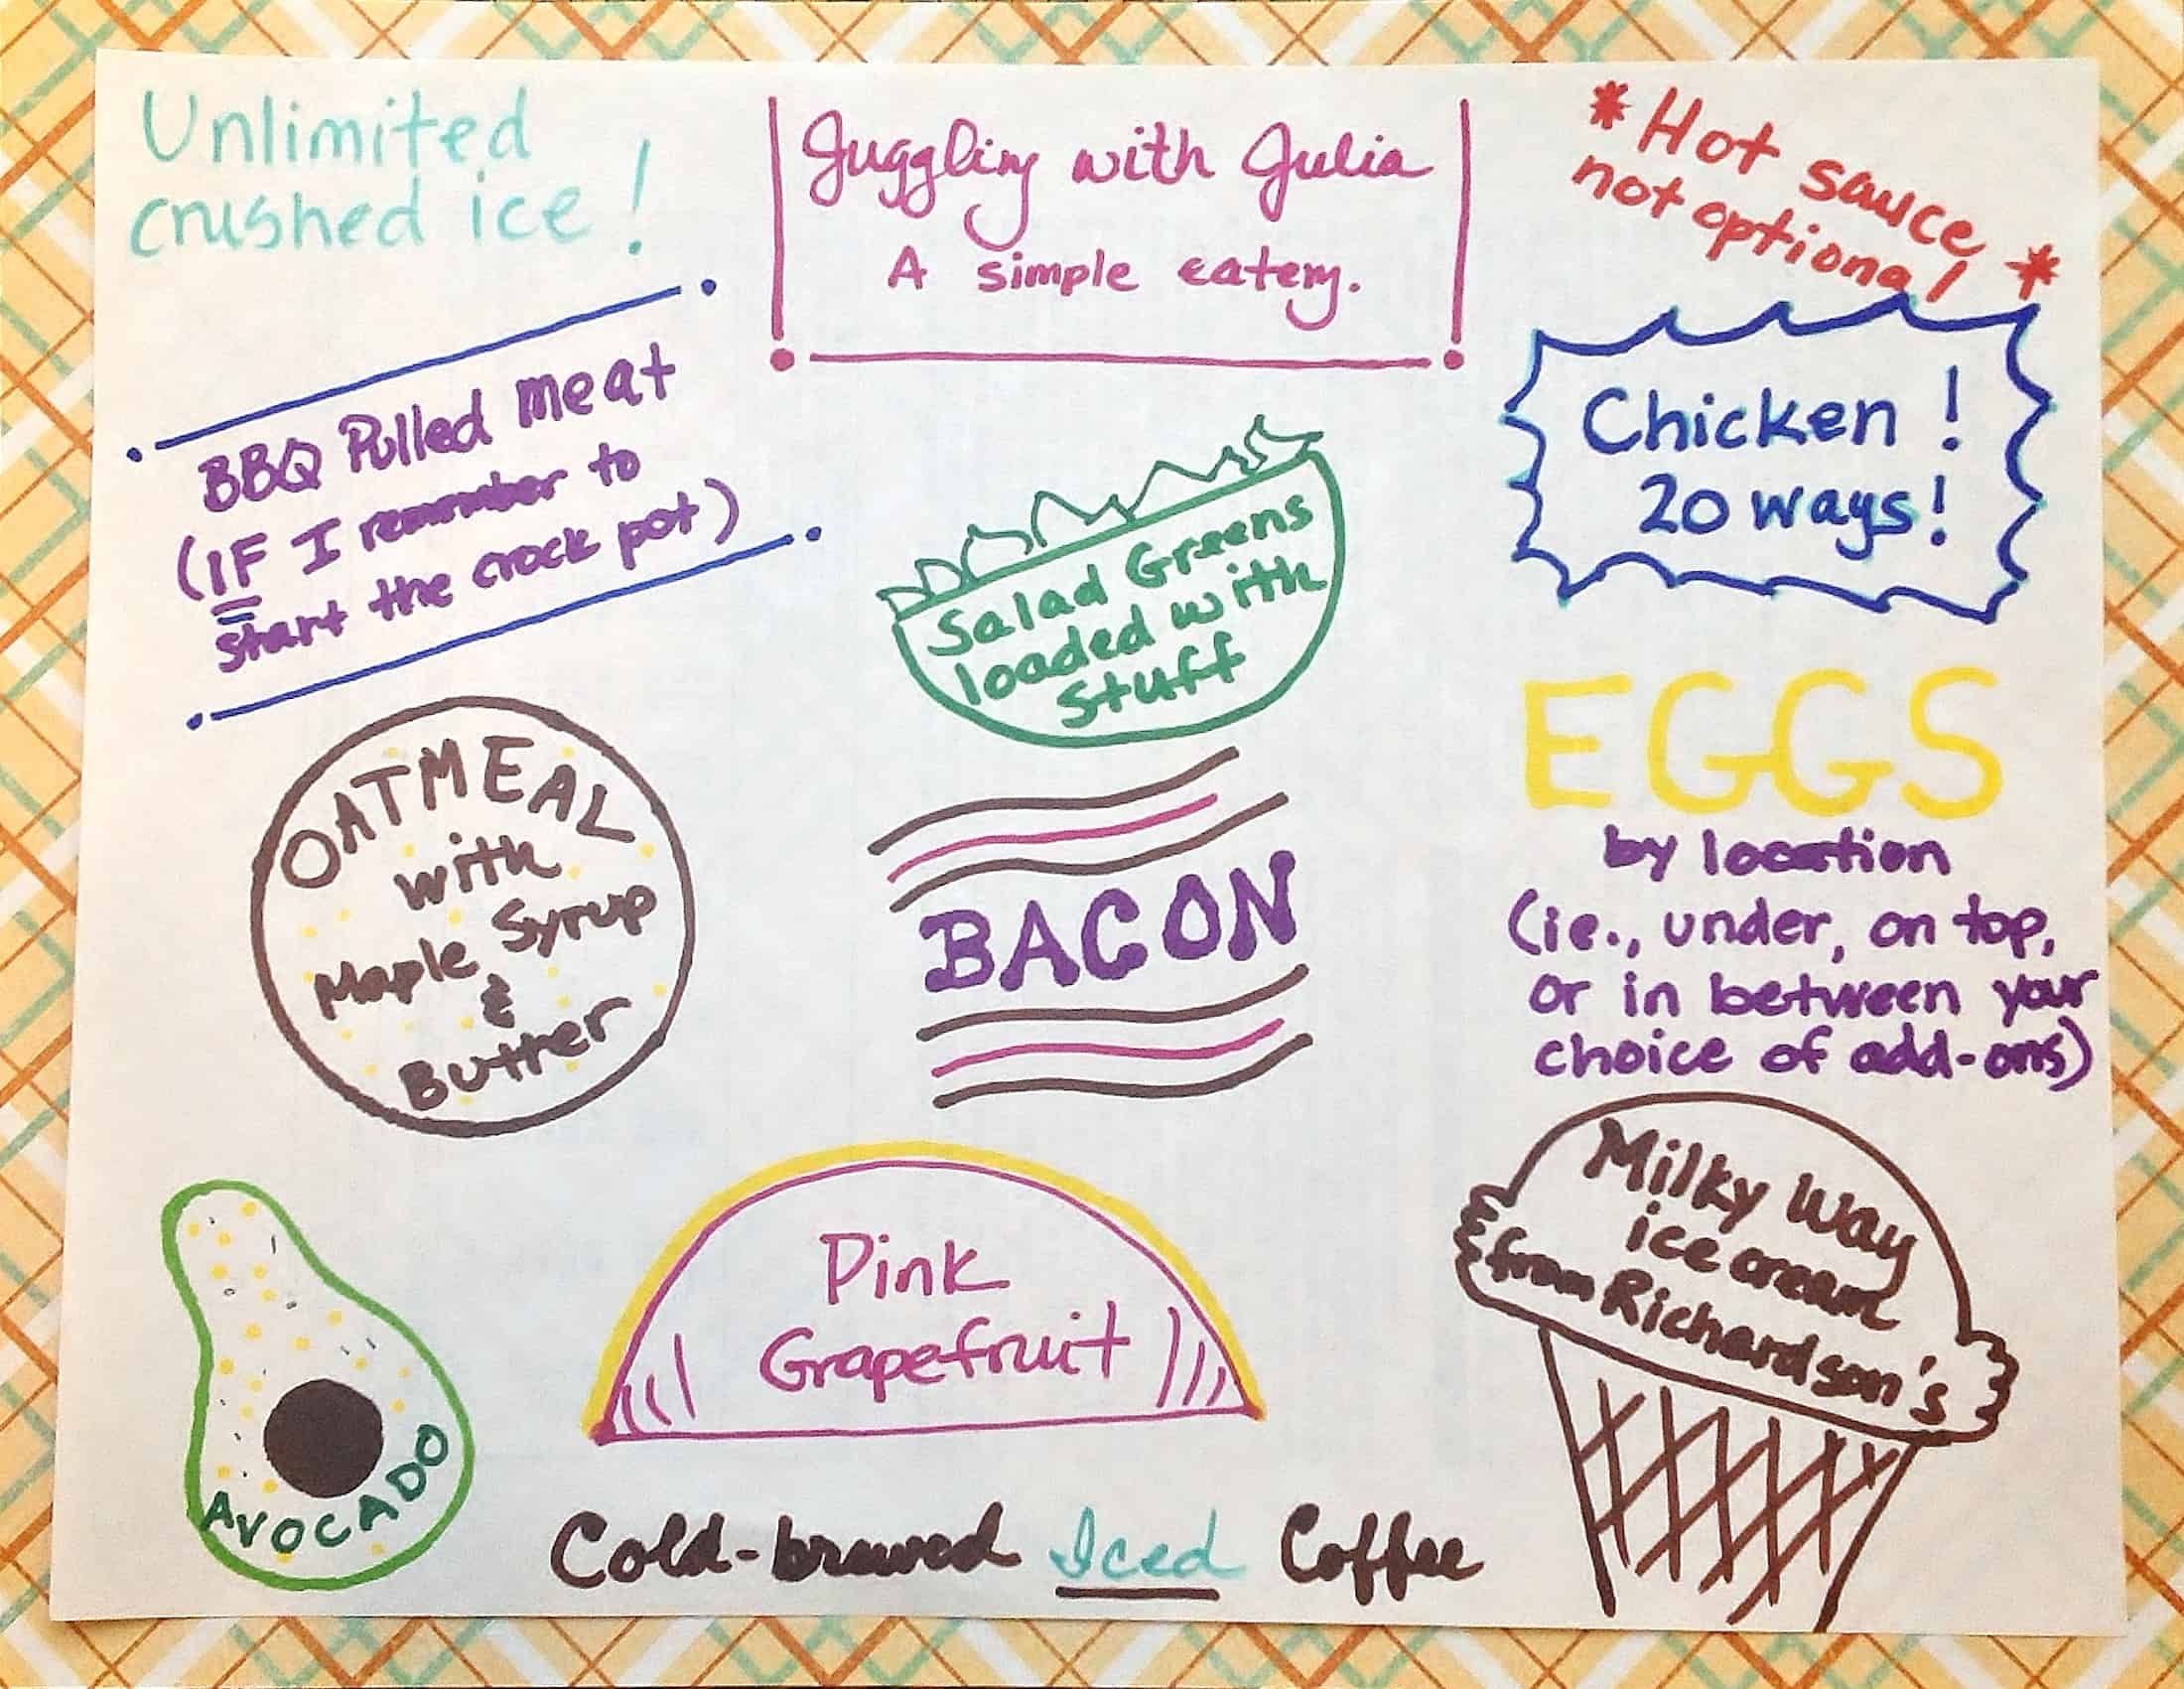 Unlimited
crushed ice!
Juggling with Julia
A simple eatery.
*Hot sauce
not optional*
BBQ Pulled meat
(IF I remember to
start the crock pot)
Salad Greens
loaded with
Stuff
Chicken!
20 ways!
OATMEAL
with
Maple Syrup
&
Butter
BACON
EGGS
by location
(ie., under, on top,
or in between your
choice of add-ons)
AVOCADO
Pink
Grapefruit
Milky Way
ice cream
from Richardson's
Cold-brewed Iced Coffee